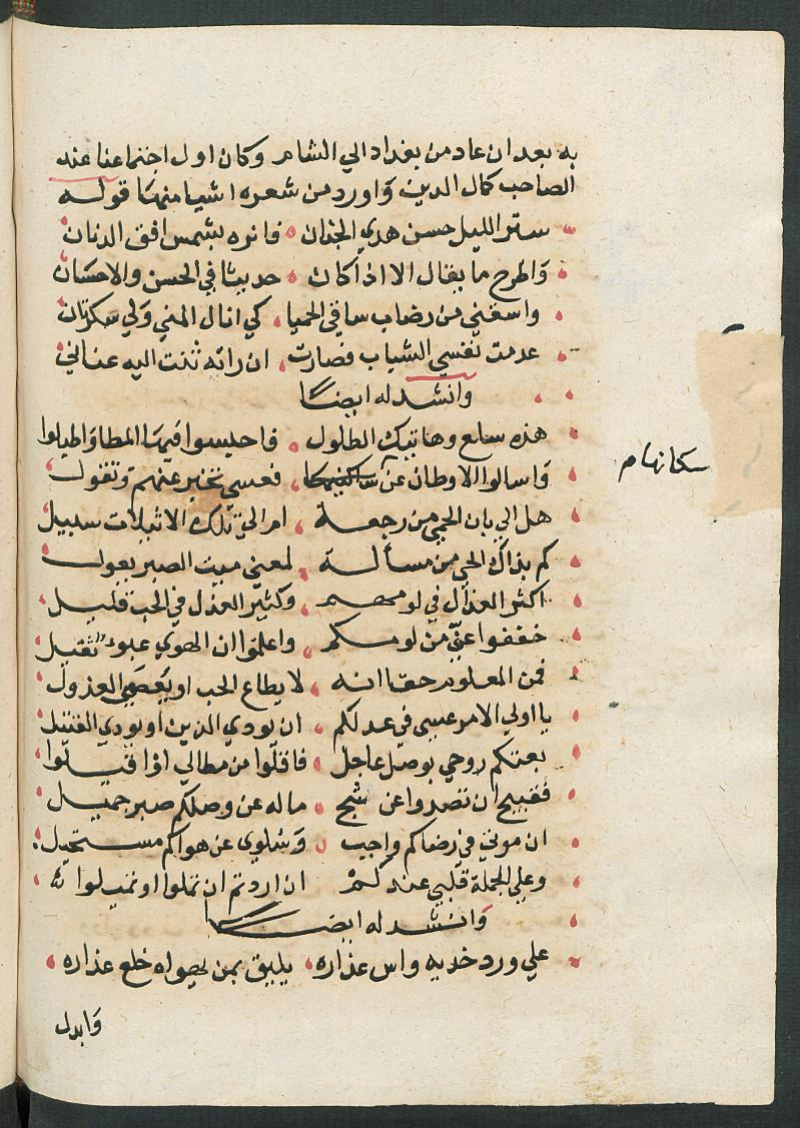 به بعد ان عاد من بغداد الي الشام وكان اول اجتماعنا عند
الصاحب كمال الدين واورد من شعره اشيا منها قوله
ستر الليل حسن هدي الجنان فانره بشمس افق الدنان
واطرح ما يقال الا اذا كان حديثا في الحسن والاحسان
واسقني من رضاب ساقي الحميا كي انال المني ولي سكرتان
عدمت نفسي الشباب فصارت ان راته ثنت اليه عناني
وانشد له ايضا
هذه سلع وهاتيك الطلول فاحبسوا فيها المطا واطيلوا
واسالوا الاوطان عن ساكنيها فعسي تخبر عنهم وتقول
سكانها م
هل الي بان الحمي من رجعة ام الي تلك الاثيلات سبيل
كم بذاك الحي من مسألة لمعني ميت الصبر يعول
اكثر العذال في لومهم وكثير العذل في الحب قليل
خففوا عني من لومكم واعلموا ان الهوي عبو ثقيل
فمن المعلوم حقا انه لا يطاع الحب او يعصي العذول
يا اولي الامر عسي في عدلكم ان يودي الدين او يودي القتيل
بعتكم روحي بوصل عاجل فاقلوا من مطالي او اقيلوا
فقبيح ان تصدوا عن شج ما له عن وصلكم صبر جميل
ان موتي في رضاكم واجب وسلوي عن هواكم مستحيل
وعلي الجملة قلبي عندكم ان اردتم ان تملوا او تميلوا
وانشد له ايضا
علي ورد خديه واس عذاره يليق بمن يهواه خلع عذاره
وابدل